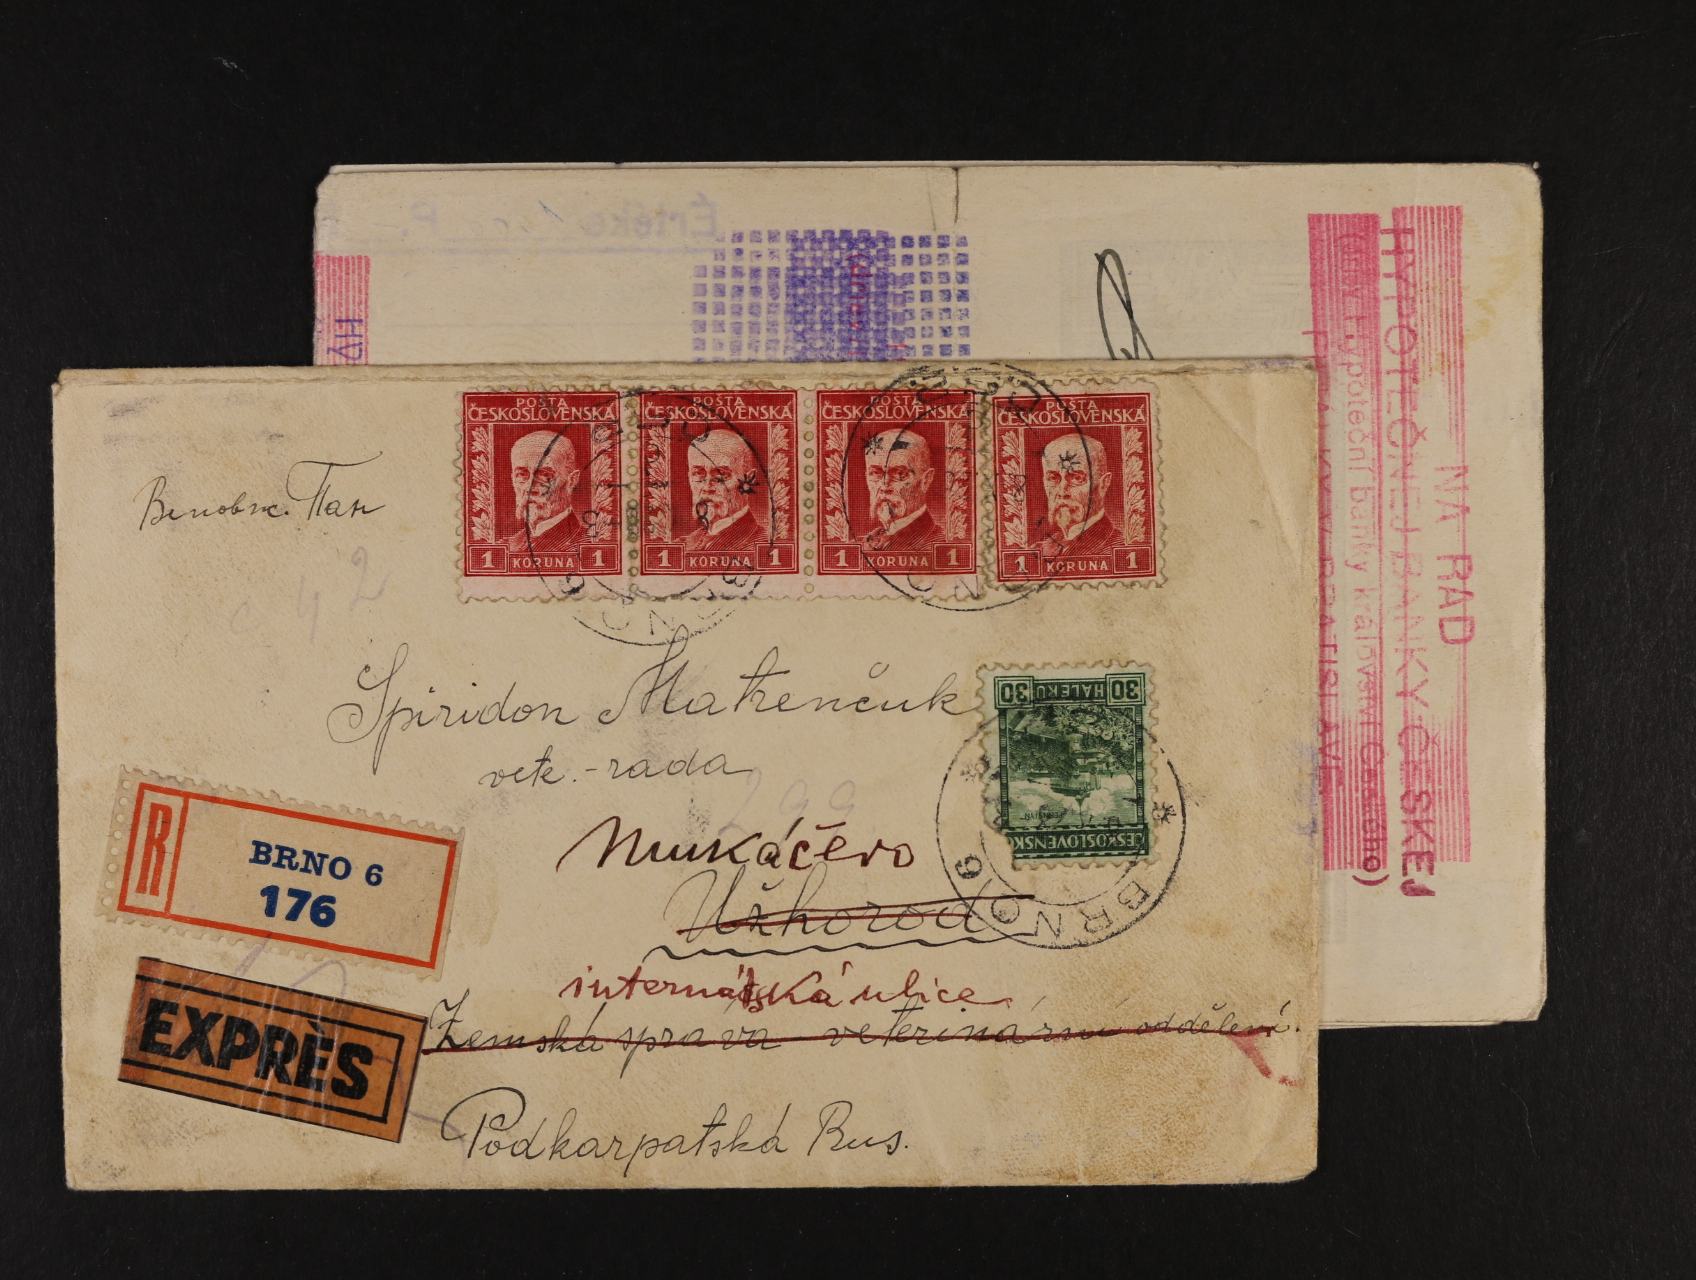 Értéke P.
NA RAD
HYPOTEČNEJ BANKY ČESKEJ
(dřív Hypoteční banky království Českého)
POŠTA
ČESKOSLOVENSKÁ
1 KORUNA 1
POŠTA
ČESKOSLOVENSKÁ
1 KORUNA 1
POŠTA
ČESKOSLOVENSKÁ
1 KORUNA 1
POŠTA
ČESKOSLOVENSKÁ
1 KORUNA 1
BRNO 6
BRNO
Пан
Spiridon Matrenčuk
vete.-rada
30 HALÉŘŮ 30
ČESKOSLOVENSKO
BRNO 6
Mukáčevo
Užhorod
internátská ulice
Zemská správa veterinární oddělení.
Podkarpatská Rus.
R
BRNO 6
176
EXPRÈS